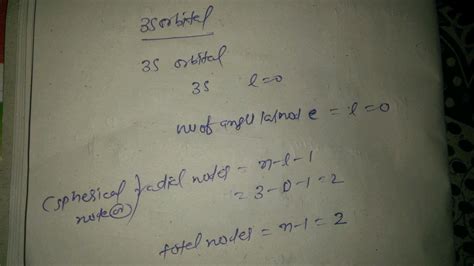 3s orbital
3s orbital
3s l=0
no of angular node = l = 0
(spherical node or) radial nodes = n-l-1
= 3-0-1 = 2
total nodes = n-1 = 2